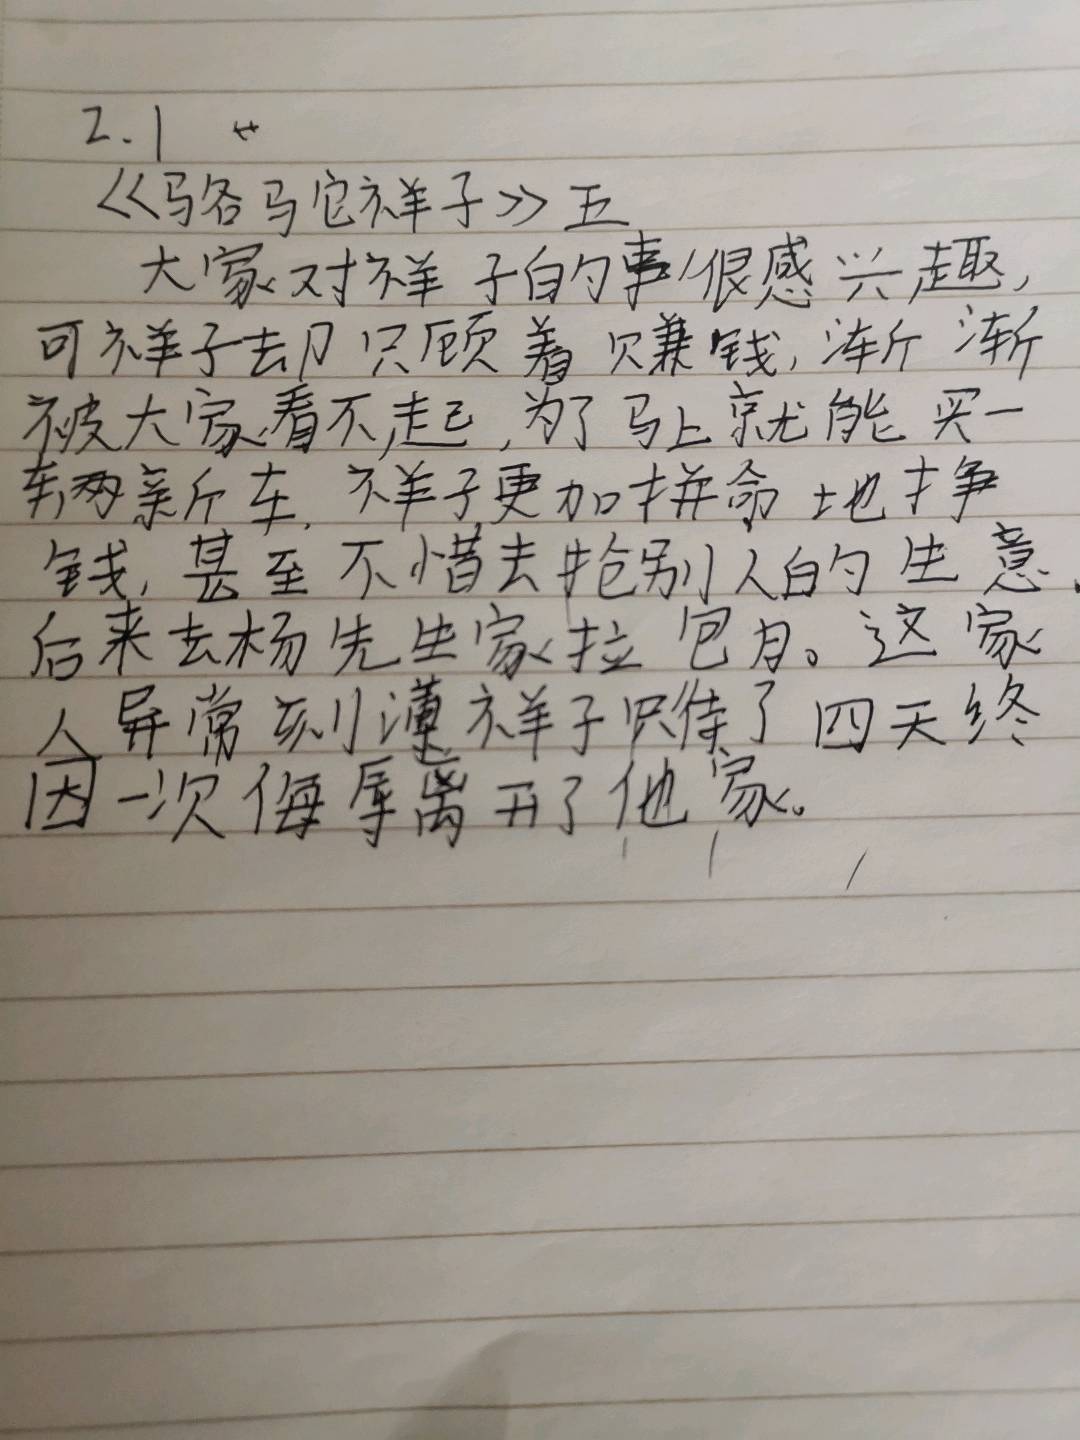 2.1
《骆驼祥子》五
大家对祥子的事很感兴趣,
可祥子却只顾着赚钱,渐渐
被大家看不起,为了马上就能买一
辆新车,祥子更加拼命地挣
钱,甚至不惜去抢别人的生意.
后来去杨先生家拉包月。这家
人异常刻薄祥子只待了四天终
因一次侮辱离开了他家。